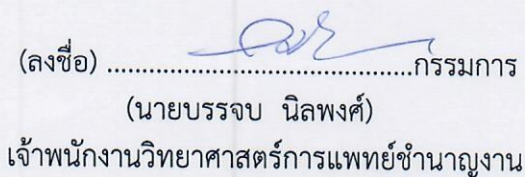 (ลงชื่อ) ................................................กรรมการ
(นายบรรจบ นิลพงศ์)
เจ้าพนักงานวิทยาศาสตร์การแพทย์ชำนาญงาน